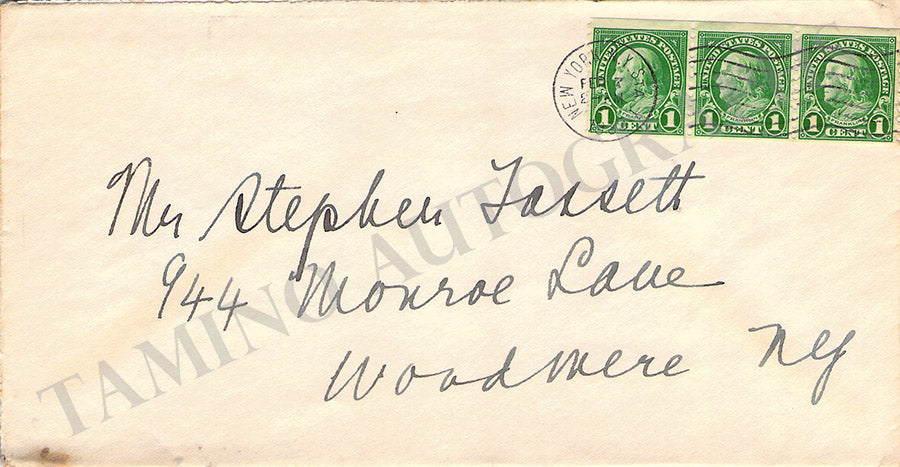 NEW YORK, N.Y. STA.
FE
UNITED STATES POSTAGE UNITED STATES POSTAGE UNITED STATES POSTAGE
FRANKLIN FRANKLIN FRANKLIN
1 CENT 1 1 CENT 1 1 CENT 1
Mr Stephen Fassett
944 Monroe Lane
Woodmere NY
TAMINO AUTOGRAPHS